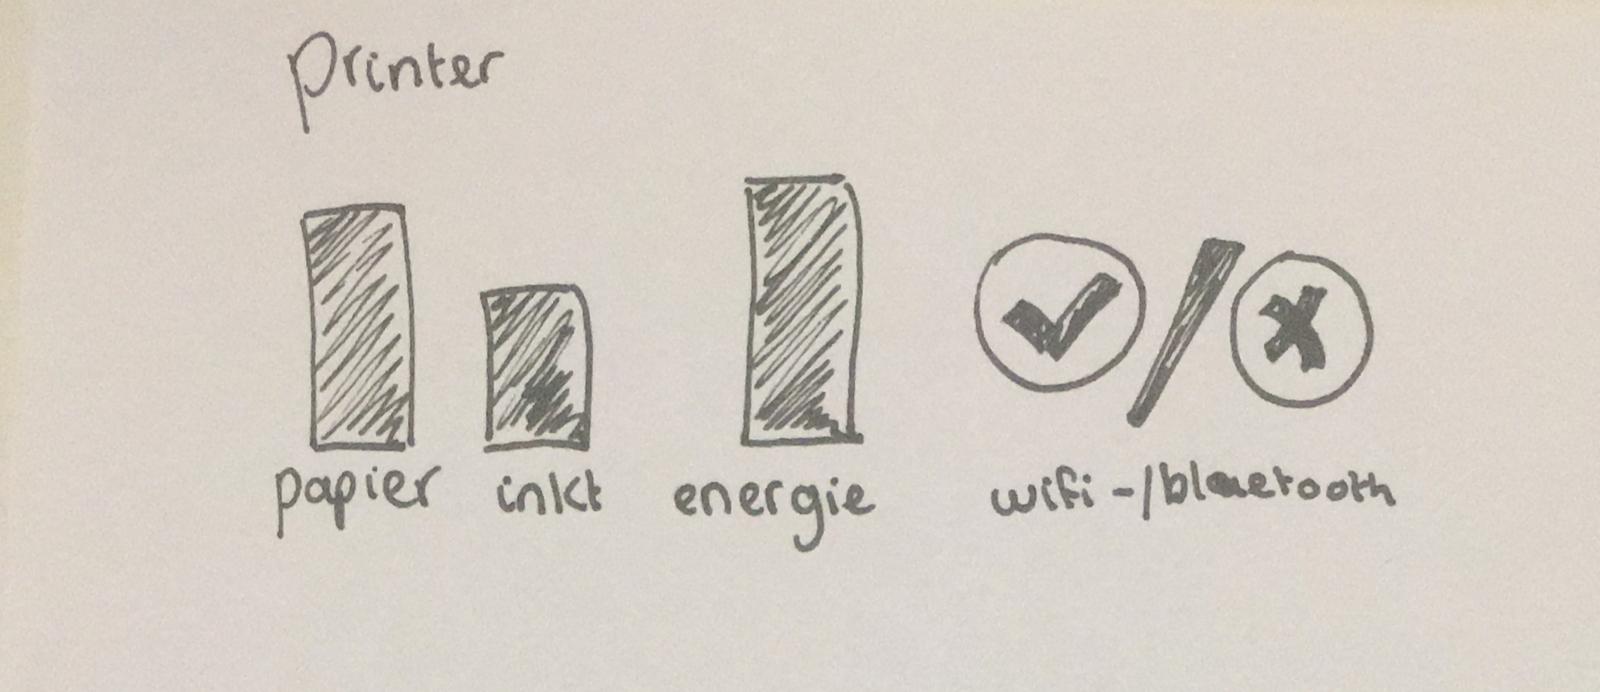 printer
papier inkt energie wifi-/bluetooth